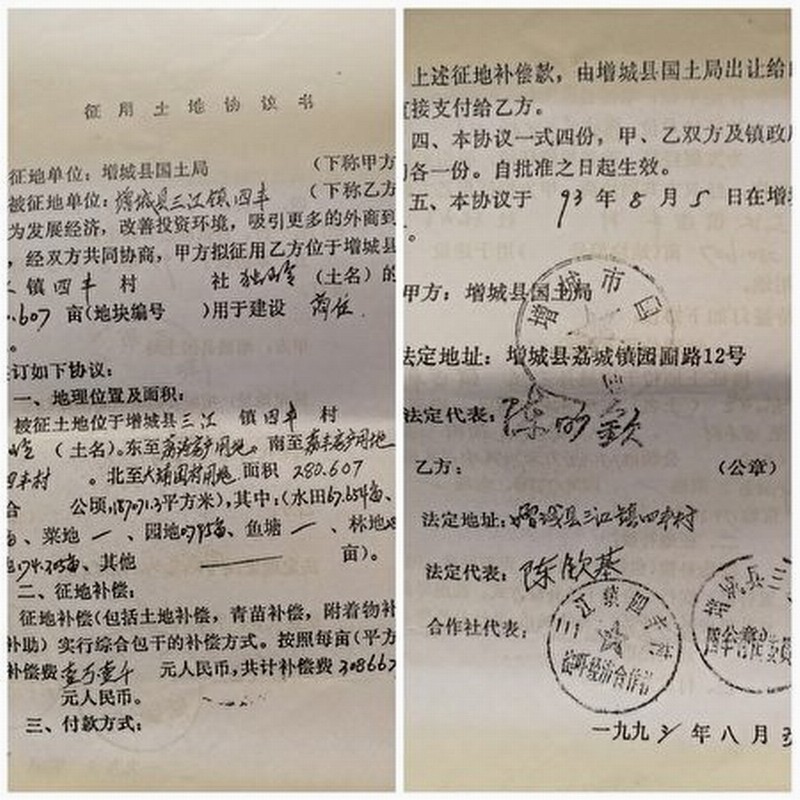 征用土地协议书
征地单位：增城县国土局 （下称甲方
被征地单位：增城县三江镇四丰 （下称乙方
为发展经济，改善投资环境，吸引更多的外商到
，经双方共同协商，甲方拟征用乙方位于增城县
镇四丰村 社 （土名）的
.607 亩（地块编号 ）用于建设 商住
。
订如下协议：
一、地理位置及面积：
被征土地位于增城县三江镇四丰村
（土名）。东至 房产用地。南至 房产用地
四丰村。北至大埔围村用地 面积 280.607
公顷,187071.3平方米），其中：（水田67.654亩、
亩、菜地 一 、园地 亩、鱼塘 一 、林地
174.305亩、其他 —— 亩）。
二、征地补偿：
征地补偿（包括土地补偿，青苗补偿，附着物补
补助）实行综合包干的补偿方式。按照每亩（平方
补偿费壹万壹仟 元人民币，共计补偿费308667
元人民币。
三、付款方式：
上述征地补偿款，由增城县国土局出让给
直接支付给乙方。
四、本协议一式四份，甲、乙双方及镇政
各一份。自批准之日起生效。
五、本协议于 93 年 8 月 5 日在增
。
甲方：增城县国土局
增城市国
法定地址：增城县荔城镇园圃路12号
法定代表：陈
乙方： （公章）
法定地址：增城县三江镇四丰村
法定代表：陈钦基
合作社代表：
三江镇四丰村
经济合作社
四丰村民委员
一九九三年八月